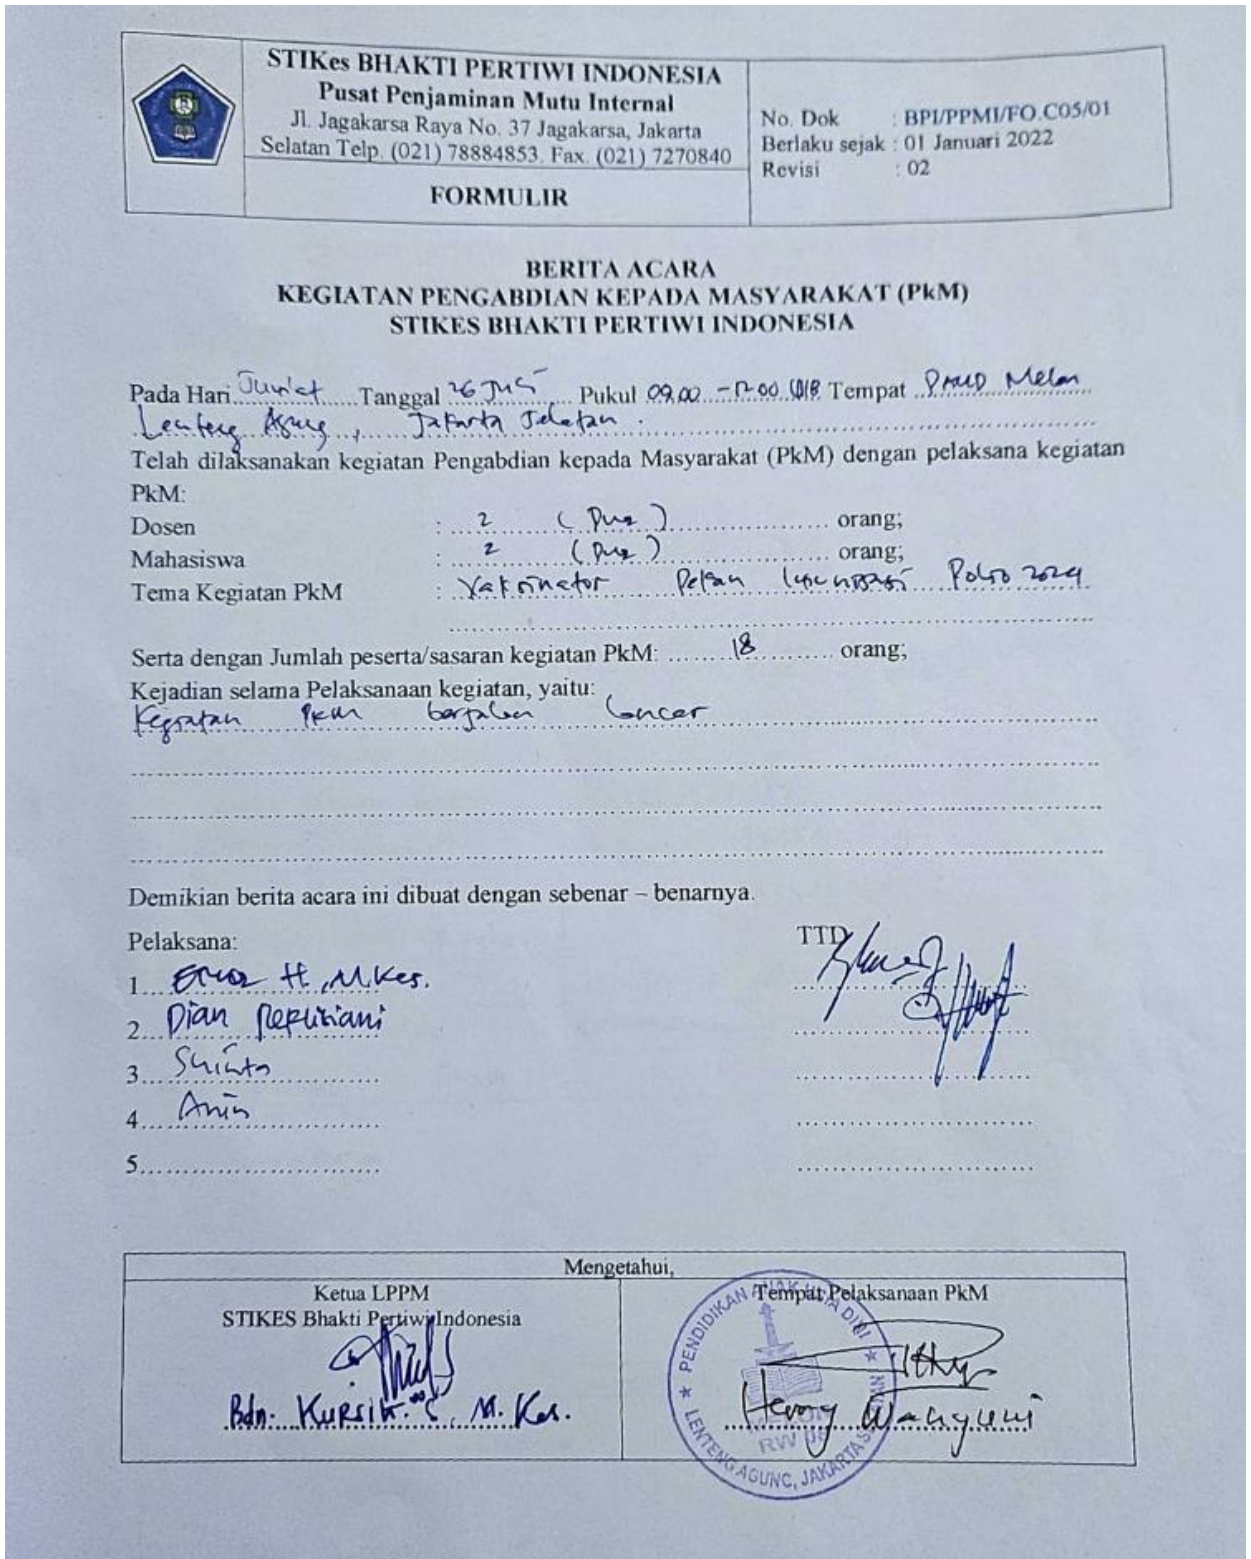 STIKes BHAKTI PERTIWI INDONESIA
Pusat Penjaminan Mutu Internal
Jl. Jagakarsa Raya No. 37 Jagakarsa, Jakarta
Selatan Telp. (021) 78884853. Fax. (021) 7270840
FORMULIR
No. Dok : BPI/PPMI/FO.C05/01
Berlaku sejak : 01 Januari 2022
Revisi : 02
BERITA ACARA
KEGIATAN PENGABDIAN KEPADA MASYARAKAT (PkM)
STIKES BHAKTI PERTIWI INDONESIA
Pada Hari Jum'at Tanggal 26 Pukul 09.00 - 12.00 WIB Tempat PAUD
Lenteng Agung, Jakarta Selatan.
Telah dilaksanakan kegiatan Pengabdian kepada Masyarakat (PkM) dengan pelaksana kegiatan
PkM:
Dosen : 2 (Dua) orang;
Mahasiswa : 2 (Dua) orang;
Tema Kegiatan PkM : Vaksinator Pekan Imunisasi Polio 2024
Serta dengan Jumlah peserta/sasaran kegiatan PkM: 18 orang;
Kejadian selama Pelaksanaan kegiatan, yaitu:
Kegiatan PkM berjalan lancar
Demikian berita acara ini dibuat dengan sebenar – benarnya.
Pelaksana:
TTD
1. H, M.Kes.
2. Dian
3. Shinta
4. Anin
5.
Mengetahui,
Ketua LPPM
STIKES Bhakti Pertiwi Indonesia
Bdn. S, M. Kes.
Tempat Pelaksanaan PkM
PENDIDIKAN ANAK USIA DINI
RW 08
LENTENG AGUNG, JAKARTA SELATAN